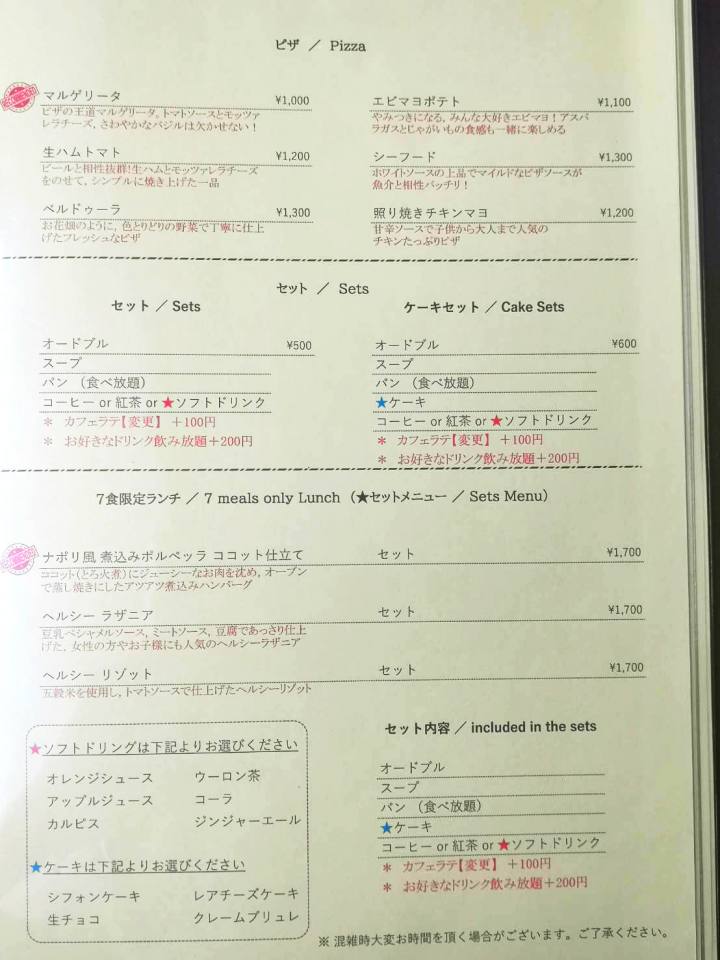 ピザ ／ Pizza
マルゲリータ ¥1,000
ピザの王道マルゲリータ。トマトソースとモッツァ
レラチーズ、さわやかなバジルは欠かせない！
生ハムトマト ¥1,200
ビールと相性抜群!生ハムとモッツァレラチーズ
をのせて、シンプルに焼き上げた一品
ベルドゥーラ ¥1,300
お花畑のように、色とりどりの野菜で丁寧に仕上
げたフレッシュなピザ
エビマヨポテト ¥1,100
やみつきになる、みんな大好きエビマヨ！アスパ
ラガスとじゃがいもの食感も一緒に楽しめる
シーフード ¥1,300
ホワイトソースの上品でマイルドなピザソースが
魚介と相性バッチリ！
照り焼きチキンマヨ ¥1,200
甘辛ソースで子供から大人まで人気の
チキンたっぷりピザ
セット ／ Sets
セット ／ Sets
オードブル ¥500
スープ
パン （食べ放題）
コーヒー or 紅茶 or ★ソフトドリンク
＊ カフェラテ【変更】 ＋100円
＊ お好きなドリンク飲み放題＋200円
ケーキセット ／ Cake Sets
オードブル ¥600
スープ
パン （食べ放題）
★ケーキ
コーヒー or 紅茶 or ★ソフトドリンク
＊ カフェラテ【変更】 ＋100円
＊ お好きなドリンク飲み放題＋200円
7食限定ランチ ／ 7 meals only Lunch（★セットメニュー ／ Sets Menu）
ナポリ風 煮込みポルペッラ ココット仕立て セット ¥1,700
ココット(とろ火煮)にジューシーなお肉を沈め、オーブン
で蒸し焼きにしたアツアツ煮込みハンバーグ
ヘルシー ラザニア セット ¥1,700
豆乳ベシャメルソース、ミートソース、豆腐であっさり仕上
げた、女性の方やお子様にも人気のヘルシーラザニア
ヘルシー リゾット セット ¥1,700
五穀米を使用し、トマトソースで仕上げたヘルシーリゾット
★ソフトドリングは下記よりお選びください
オレンジシュース ウーロン茶
アップルジュース コーラ
カルピス ジンジャーエール
★ケーキは下記よりお選びください
シフォンケーキ レアチーズケーキ
生チョコ クレームブリュレ
セット内容 ／ included in the sets
オードブル
スープ
パン （食べ放題）
★ケーキ
コーヒー or 紅茶 or ★ソフトドリンク
＊ カフェラテ【変更】 ＋100円
＊ お好きなドリンク飲み放題＋200円
※ 混雑時大変お時間を頂く場合がございます。ご了承ください。